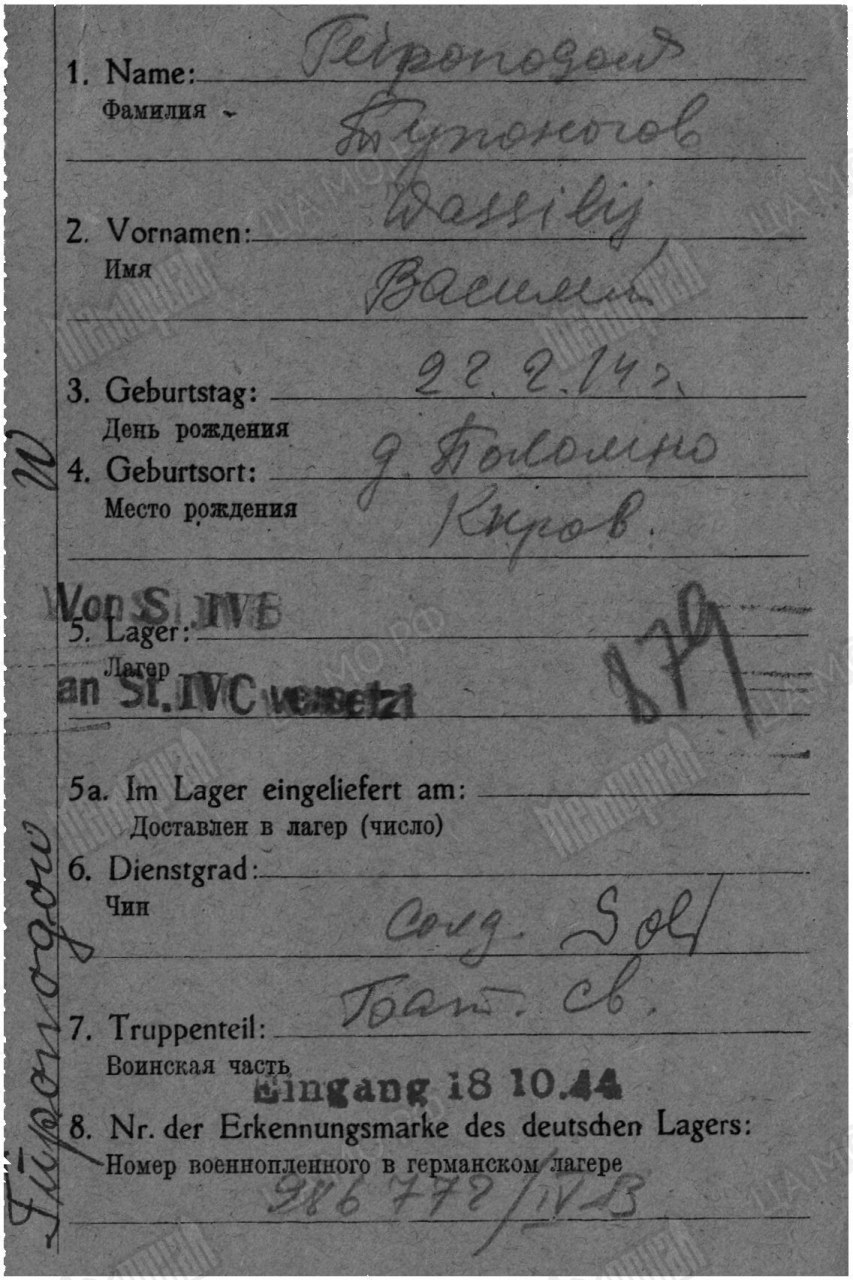 1. Name:
Фамилия
Тупоногов
2. Vornamen: Wassilij
Имя
Василий
3. Geburtstag: 22.2.14 г.
День рождения
4. Geburtsort: д.
Место рождения
Киров.
Von St. IVB
5. Lager:
Лагер
879
an St. IVC versetzt
5a. Im Lager eingeliefert am:
Доставлен в лагер (число)
6. Dienstgrad:
Чин
Солд. Sold
Бат. св.
7. Truppenteil:
Воинская часть
Eingang 18 10.44
8. Nr. der Erkennungsmarke des deutschen Lagers:
Номер военнопленного в германском лагере
286 772/IVB
W
Tüponogow
Мемориал
ЦА МО РФ